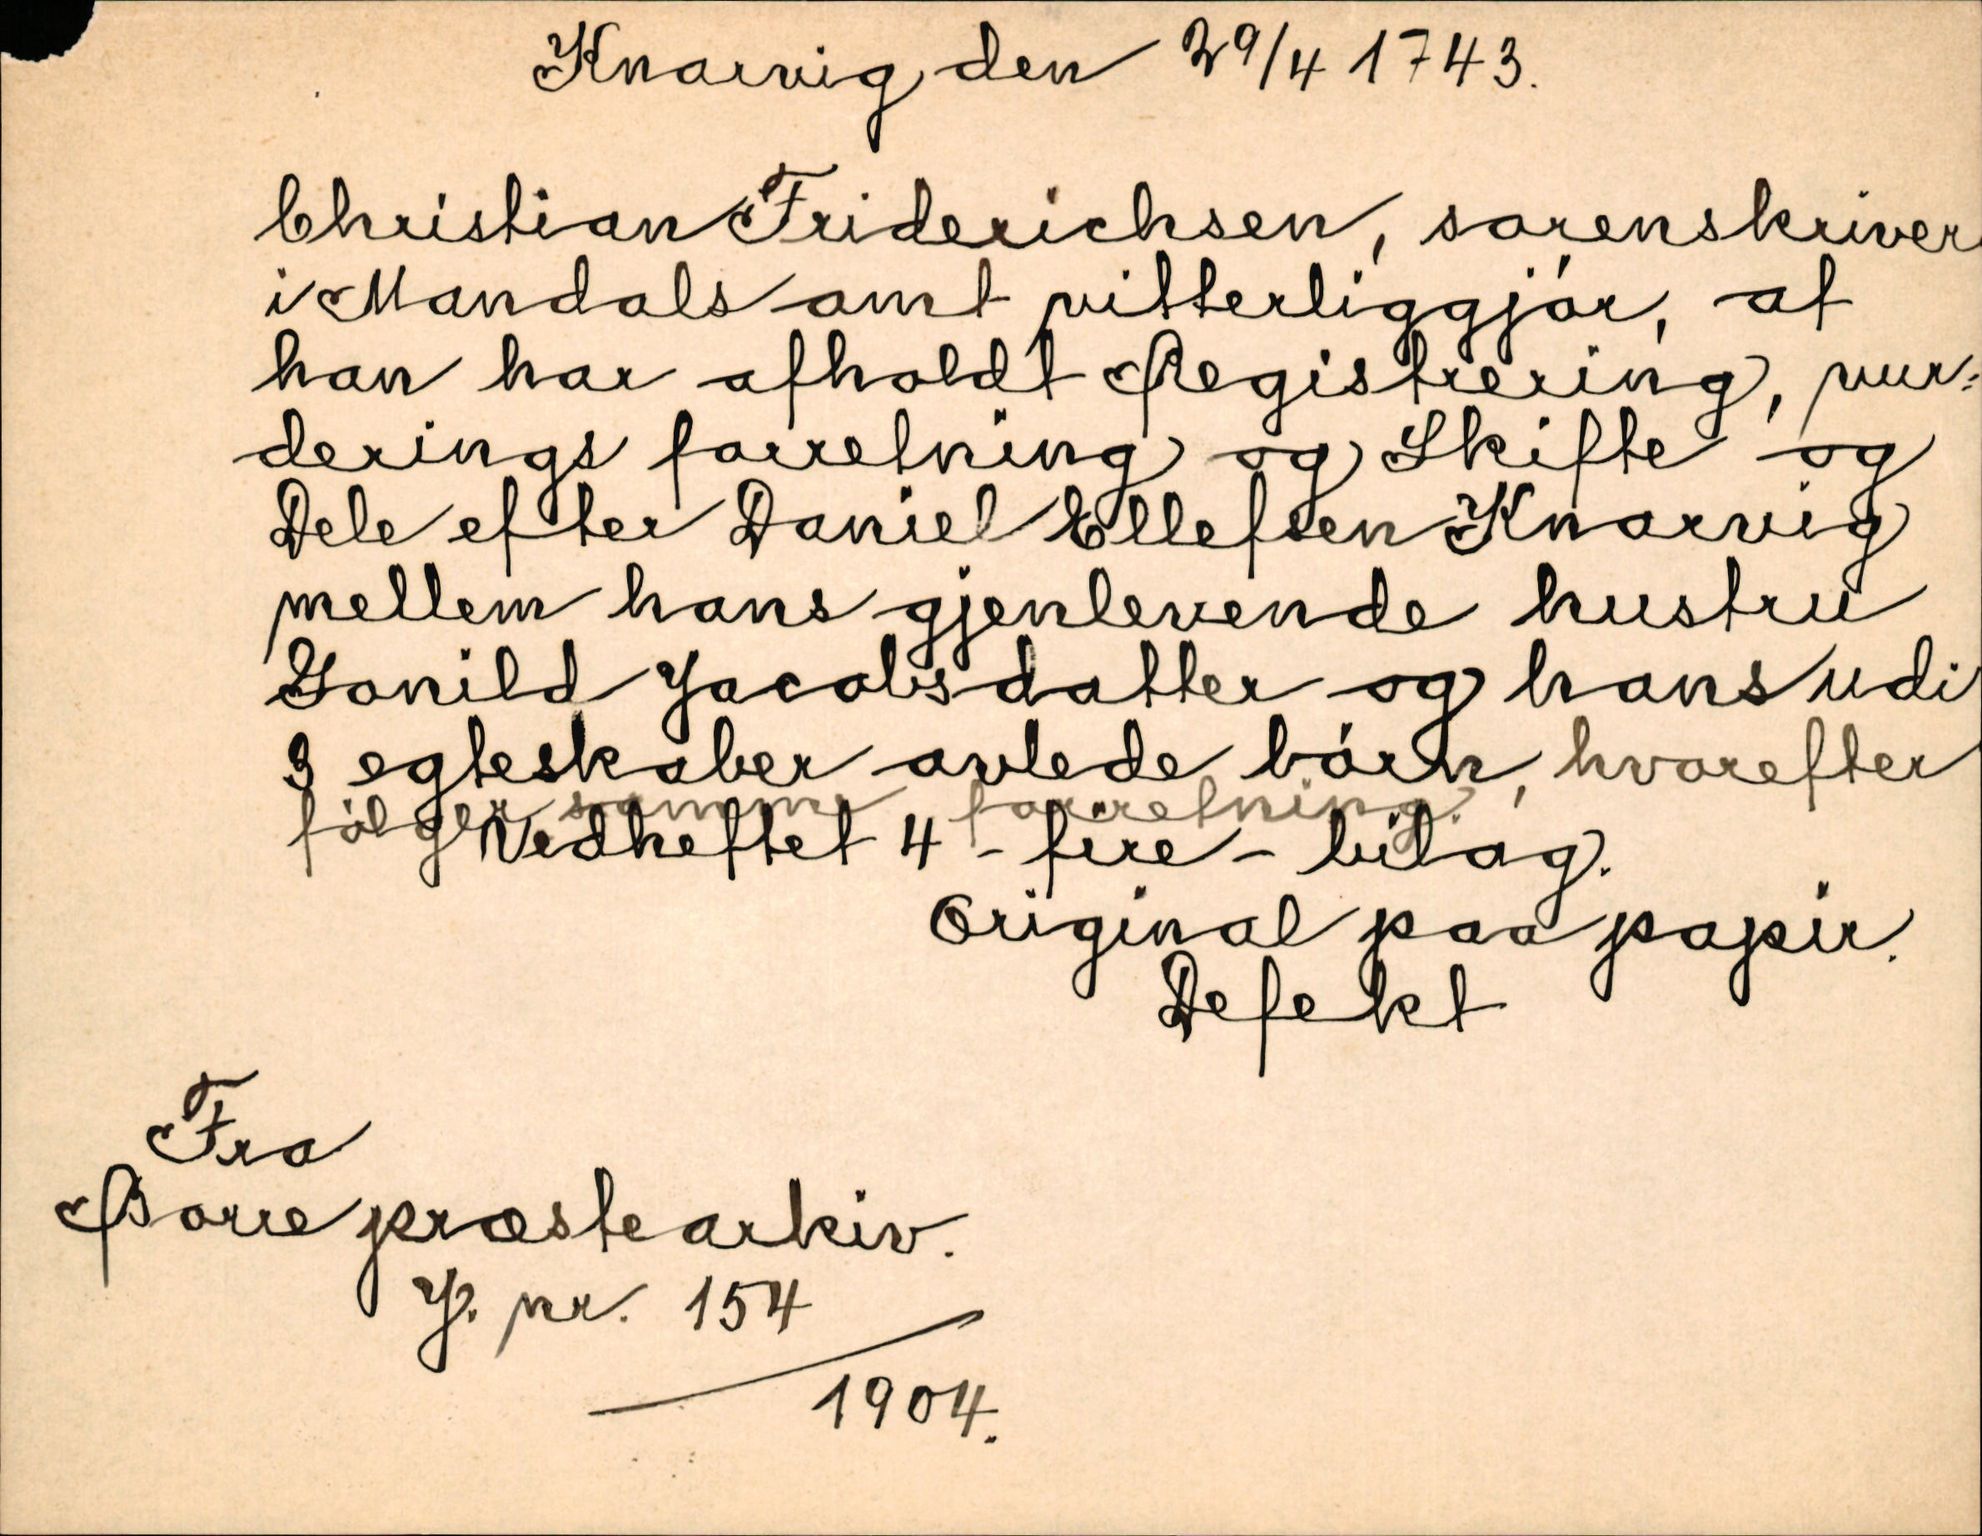 Knarvig den 29/4 1743.
Christian Friderichsen, sorenskriver
i Mandals amt vitterliggjór, at
han har afholdt Registrering, vur:
derings forretning og Skifte og
Dele efter Daniel Ellefsen Knarvig
mellem hans gjenlevende hustru
Gonild Jacobsdatter og hans udi
3 egteskaber avlede bórn, hvorefter
fólger samme forretning.
Vedheftet 4 - fire - bilag.
Original paa papir.
Defekt
Fra
Borre præstearkiv.
J. nr. 154
1904.